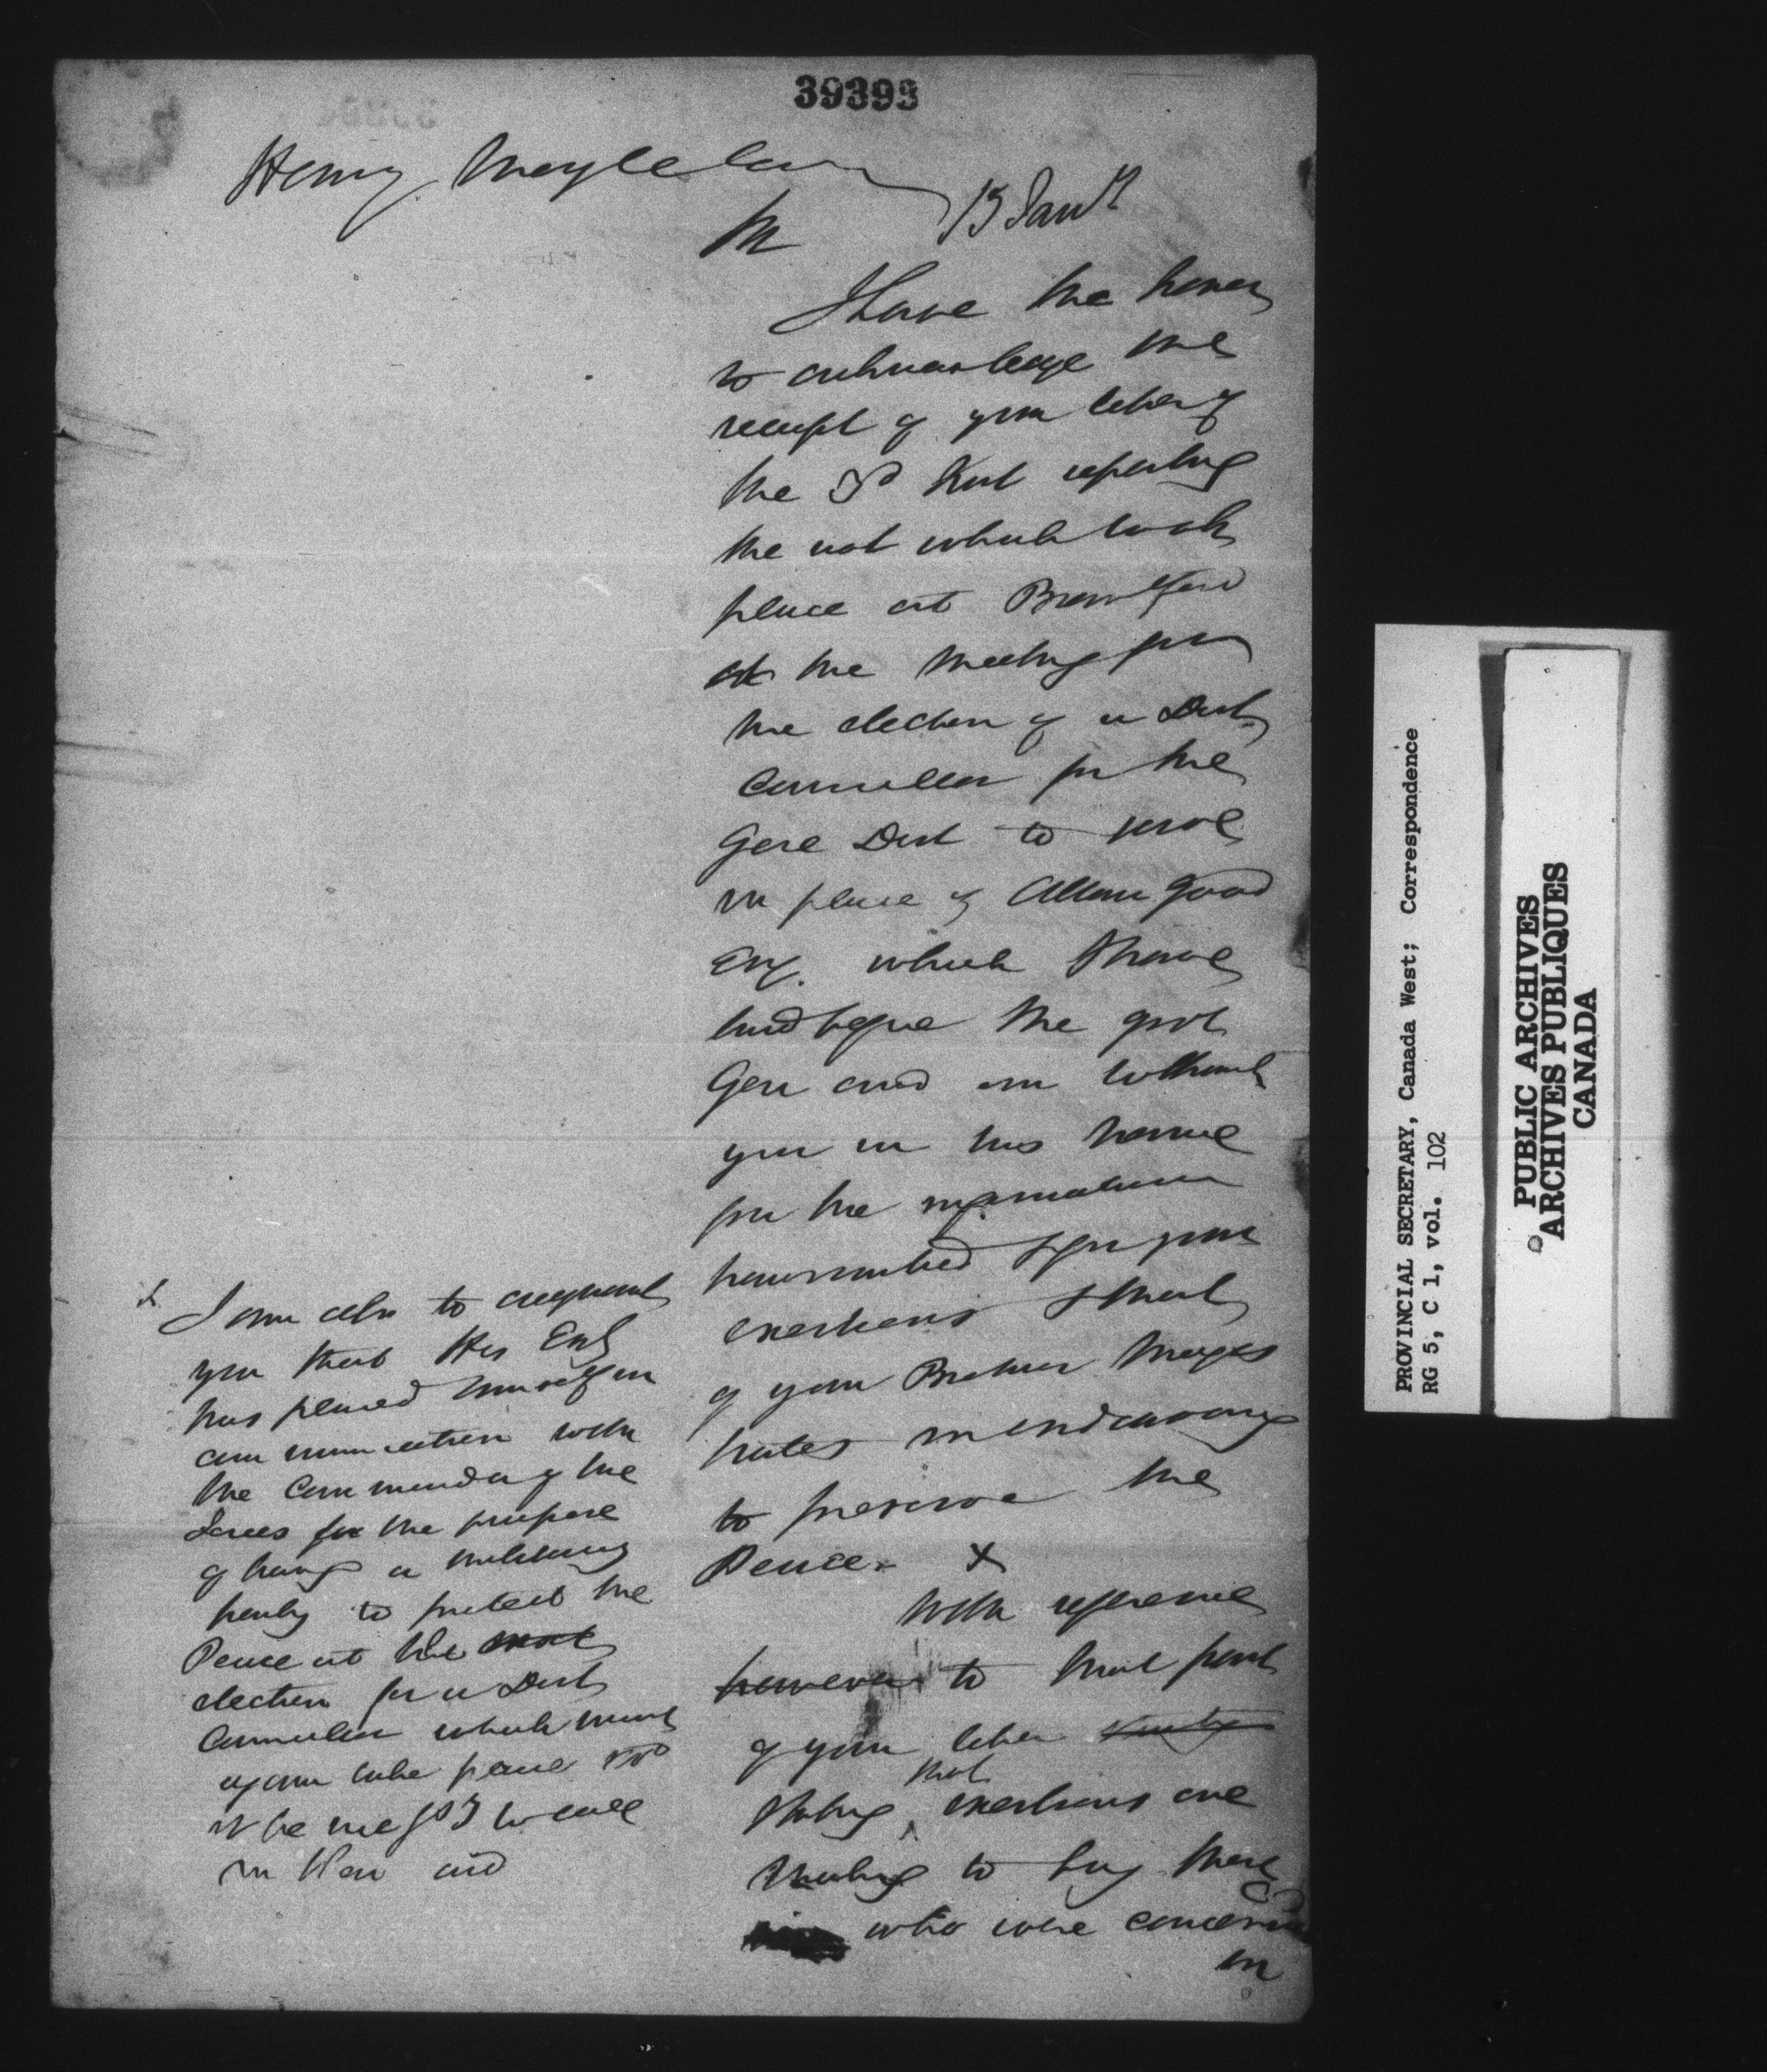 39393
Henry
13 Jany
Sir
I have the honor
to acknowledge the
receipt of your letter of
the 8th Inst reporting
the riot which took
place at Brantford
at the meeting for
the election of a Dist
Councillor for the
Gore Dist to serve
in place of Allan Good
Esq. which I have
laid before the Govr
Genl and am to thank
you in his name
for the information
transmitted & for your
exertions & that
of your Brother Magis
trates in endeavoring
to preserve the
Peace. x
With reference
however to that part
of your letter
stating that exertions are
making to bring those
who were concerned
in
x I am also to acquaint
you that His Exy
has placed himself in
communication with
the Commander of the
Forces for the purpose
of having a military
party to protect the
Peace at the
election for a Dist
Councillor which must
again take place
it be necessy to call
in their aid
PROVINCIAL SECRETARY, Canada West; Correspondence
RG 5, C 1, vol. 102
PUBLIC ARCHIVES
ARCHIVES PUBLIQUES
CANADA